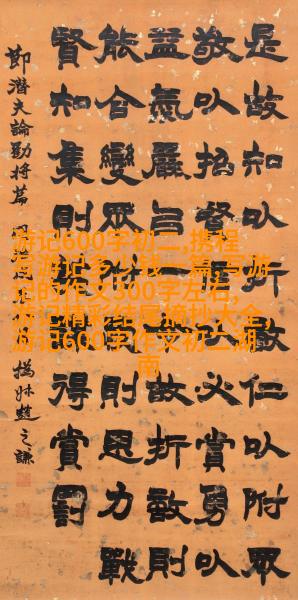 是故知以仁以附眾
敬以招賢必賞勇以
益氣嚴吕一故折敵則
能合變眾則思力戰
賢知集則得賞罰
節潛夫論勸將篇
撝叔趙之謙
游记600字初二,携程
写游记多少钱一篇,写游
记的作文300字左右,
游记精彩结尾摘抄大全,
游记600字作文初二湖
南